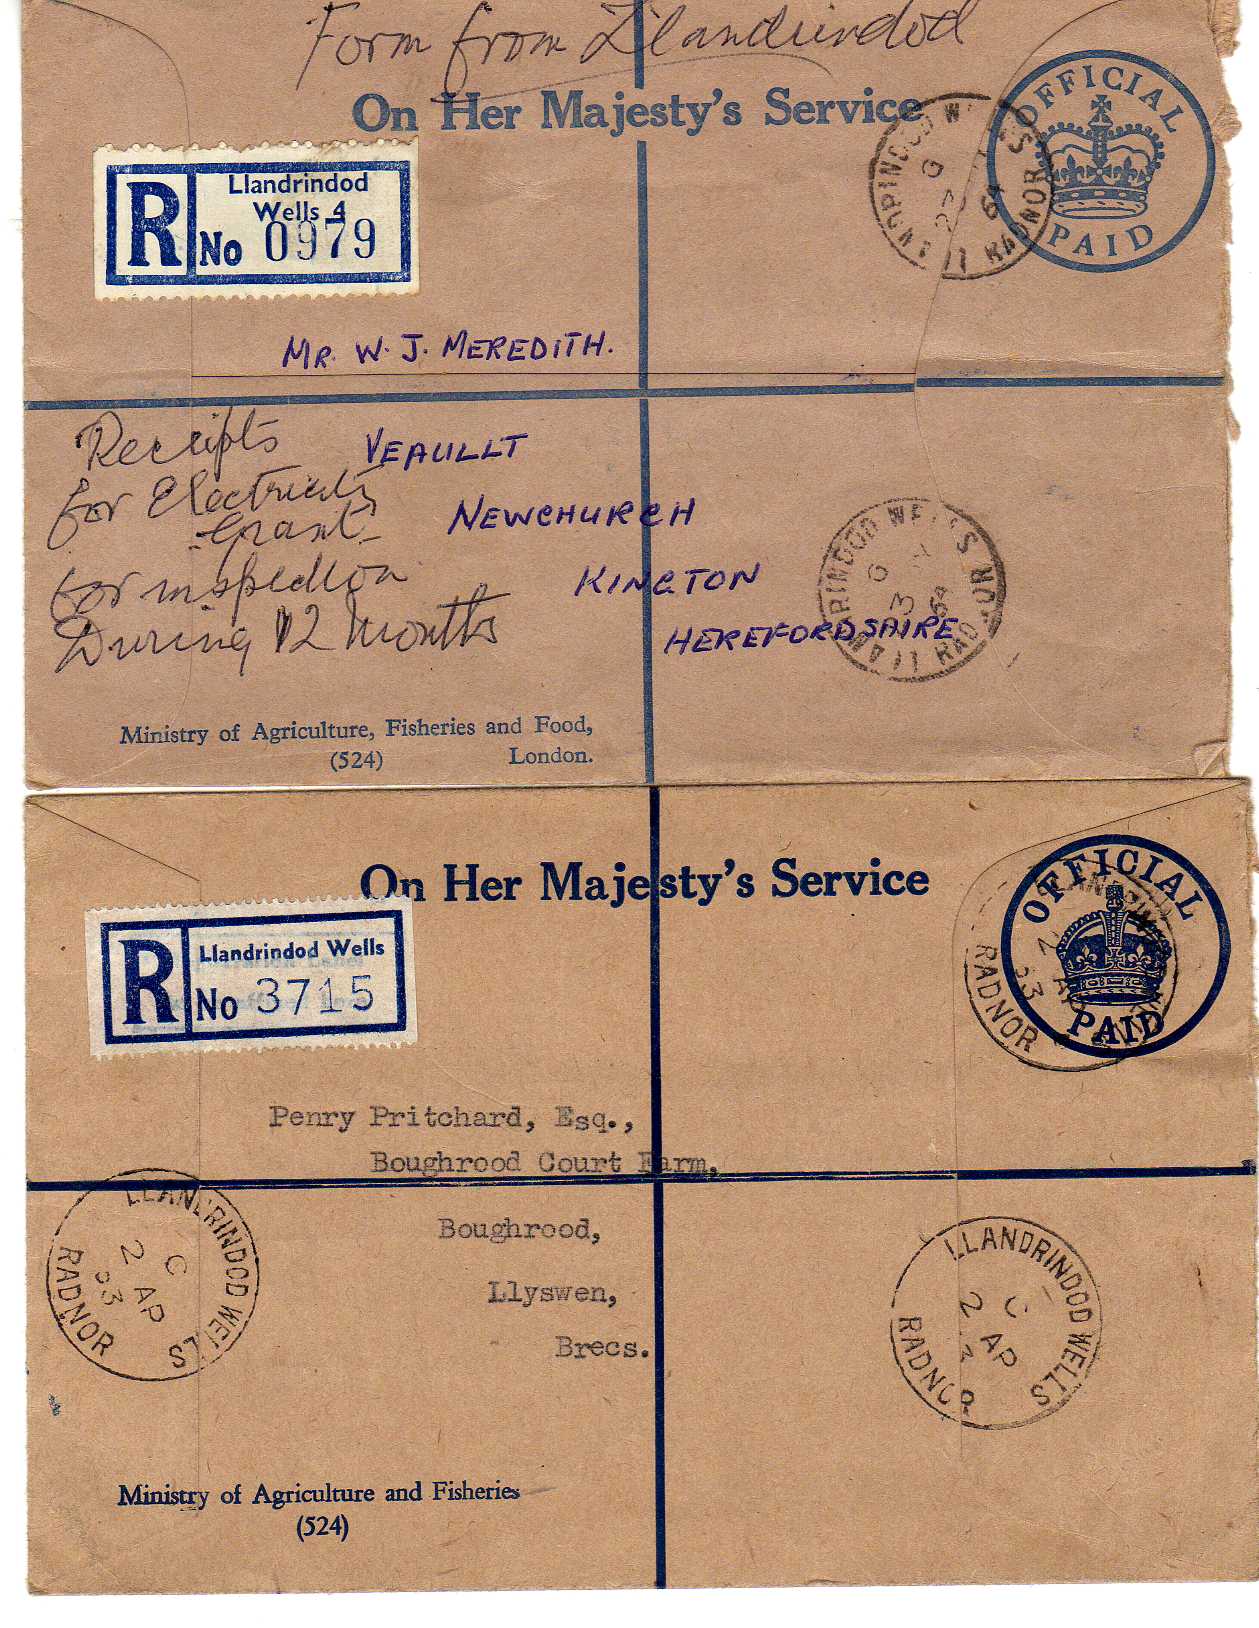 Form from Llandrindod
On Her Majesty's Service
OFFICIAL
PAID
R
Llandrindod
Wells 4
No 0979
RADNOR
G
27
64
MR. W. J. MEREDITH.
Receipts
for Electricity
Grant
for inspection
During 12 months
VEAULLT
NEWCHURCH
KINGTON
HEREFORDSHIRE
LLANDRINDOD WELLS RADNOR
G
3
64
Ministry of Agriculture, Fisheries and Food,
(524) London.
On Her Majesty's Service
OFFICIAL
PAID
RADNOR
2 AP
53
R
Llandrindod Wells
No 3715
Penry Pritchard, Esq.,
Boughrood Court Farm,
Boughrood,
Llyswen,
Brecs.
LLANDRINDOD WELLS
RADNOR
C
2 AP
53
LLANDRINDOD WELLS
RADNOR
C
2 AP
Ministry of Agriculture and Fisheries
(524)